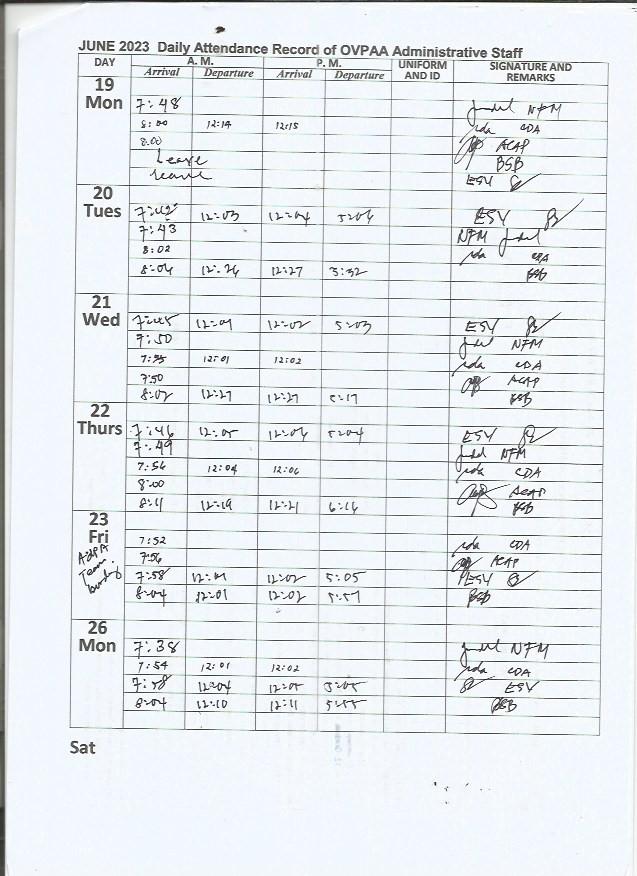 JUNE 2023 Daily Attendance Record of OVPAA Administrative Staff
DAY A. M. P. M. UNIFORM AND ID SIGNATURE AND REMARKS
Arrival Departure Arrival Departure
19 Mon
7:48 NFM
8:00 12:14 12:15 CDA
8:00 ACAP
Leave BSB
Leave ESV
20 Tues
7:42 12:03 12:04 5:04 ESV
7:43 NFM
8:02 CDA
8:06 12:26 12:27 5:32 BSB
21 Wed
7:45 12:01 12:02 5:03 ESV
7:50 NFM
7:55 12:01 12:02 CDA
7:50 ACAP
8:02 12:27 12:27 5:17 BSB
22 Thurs
7:46 12:05 12:06 5:04 ESV
7:49 NFM
7:56 12:04 12:06 CDA
8:00 ACAP
8:11 12:19 12:21 6:16 BSB
23 Fri
Team
7:52 CDA
7:56 ACAP
7:58 12:01 12:02 5:05 ESV
8:04 12:01 12:02 5:57 BSB
26 Mon
7:38 NFM
7:54 12:01 12:02 CDA
7:58 12:04 12:05 5:05 ESV
8:04 12:10 12:11 5:55 BSB
Sat